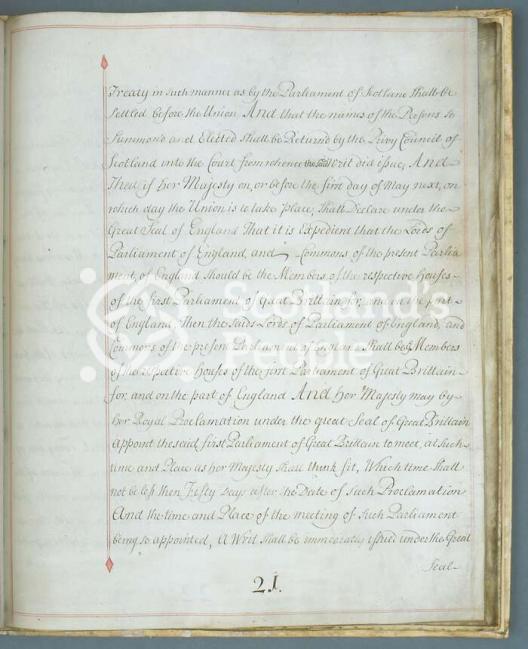 Treaty in such manner as by the Parliament of Scotland shall be
settled before the Union. And that the names of the Persons so
Summond and Elected shall be Returnd by the Privy Council of
Scotland into the Court from whence the said Writ did issue, And
That if her Majesty on, or before the first day of May next, on
which day the Union is to take place, shall Declare under the
Great Seal of England That it is Expedient that the Lords of
Parliament of England, and Commons of the present Parlia
ment, of England should be the Members of the respective houses
of the first Parliament of Great Brittain for, and on the part
of England, Then the saids Lords of Parliament of England, and
Commons of the present Parliament of England shall be Members
of the respective houses of the first Parliament of Great Brittain
for and on the part of England And her Majesty may by
her Royal Proclamation under the great Seal of Great Brittain
appoint the said first Parliament of Great Brittain to meet, at such
time and Place as her Majesty shall think fit, Which time shall
not be less then Fifty Days after the Date of such Proclamation
And the time and Place of the meeting of such Parliament
being so appointed, A Writ shall be immediatly issued under the Great
Seal
21.
Scotland's
People